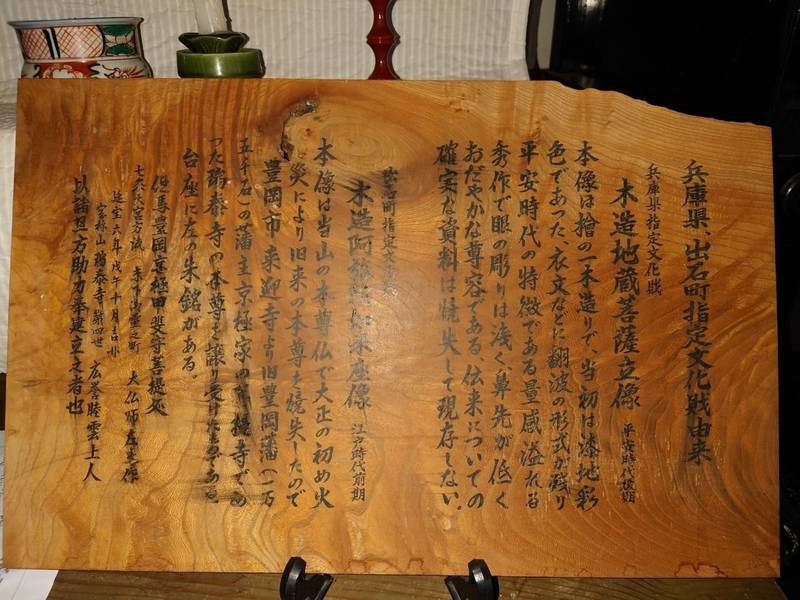 兵庫県、出石町指定文化財由来
兵庫県指定文化財
木造地蔵菩薩立像 平安時代後期
本像は檜の一木造りで、当初は漆地彩
色であった、衣文などに翻波の形式が残り
平安時代の特徴である量感溢れる
秀作で眼の彫りは浅く、鼻先が低く
おだやかな尊容である、伝来についての
確実な資料は焼失して現存しない。
出石町指定文化財
木造阿弥陀如来座像 江戸時代前期
本像は当山の本尊仏で大正の初め火
災により旧来の本尊を焼失したので
豊岡市 来迎寺より旧豊岡藩(一万
五千石)の藩主京極家の菩提寺であ
った瑞泰寺の本尊を譲り受けたものである
台座に左の朱銘がある。
但馬豊岡京極甲斐守菩提処
大仏師左京作
延宝六年戊午十月吉日
宝林山瑞泰寺第四世 広誉睦雲上人
以諸旦方助力奉建立之者也